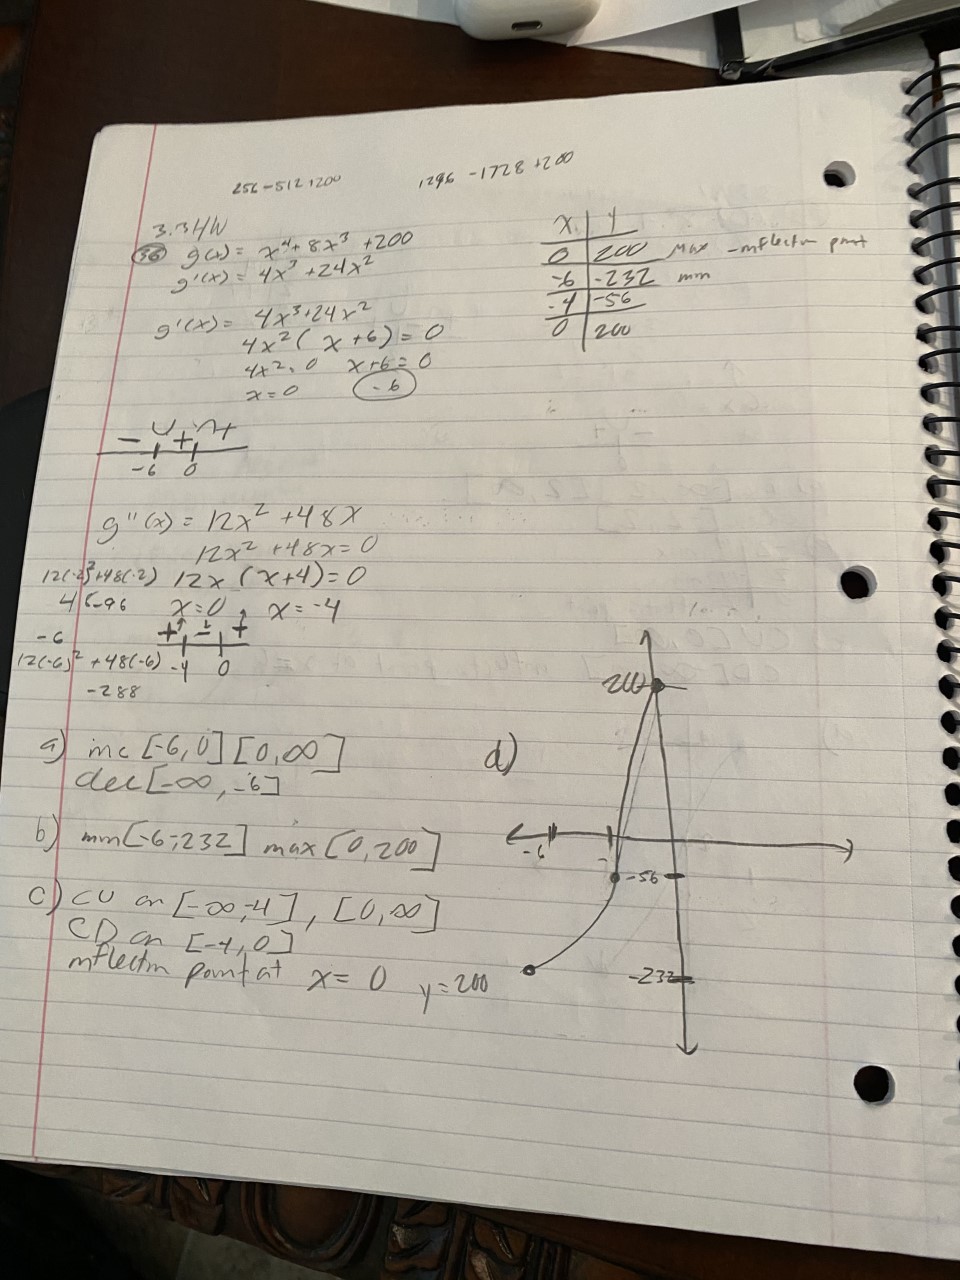 256-512+200
1296 -1728 +200
3.3 HW
36 g(x) = x⁴+ 8x³ +200
g'(x) = 4x³ +24x²
g'(x) = 4x³+24x²
4x² ( x +6) = 0
4x²=0 x+6=0
x=0 -6
X Y
0 200 Max -inflectin point
-6 -232 min
-4 -56
0 200
- + +
-6 0
g''(x) = 12x² +48x
12x² +48x=0
12(-2)²+48(-2) 12x (x+4)=0
48-96 x=0 x=-4
-6 + - +
12(-6)² +48(-6) -4 0
-288
a) inc [-6,0] [0,∞]
dec [-∞,-6]
b) min [-6,-232] max [0,200]
c) CU on [-∞,-4], [0,∞]
CD on [-4,0]
inflectin point at x= 0 y=200
d)
200
-6
-56
-232